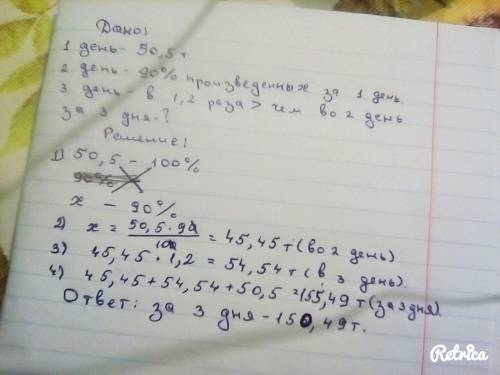 Дано:
1 день - 50,5 т.
2 день - 90% произведенных за 1 день.
3 день - в 1,2 раза > чем во 2 день
за 3 дня - ?
Решение:
1) 50,5 - 100%
90%
x - 90%
2) x = 50,5 · 90 / 100 = 45,45 т (во 2 день)
3) 45,45 · 1,2 = 54,54 т (в 3 день).
4) 45,45 + 54,54 + 50,5 = 155,49 т (за 3 дня).
Ответ: за 3 дня - 150,49 т.
Retrica